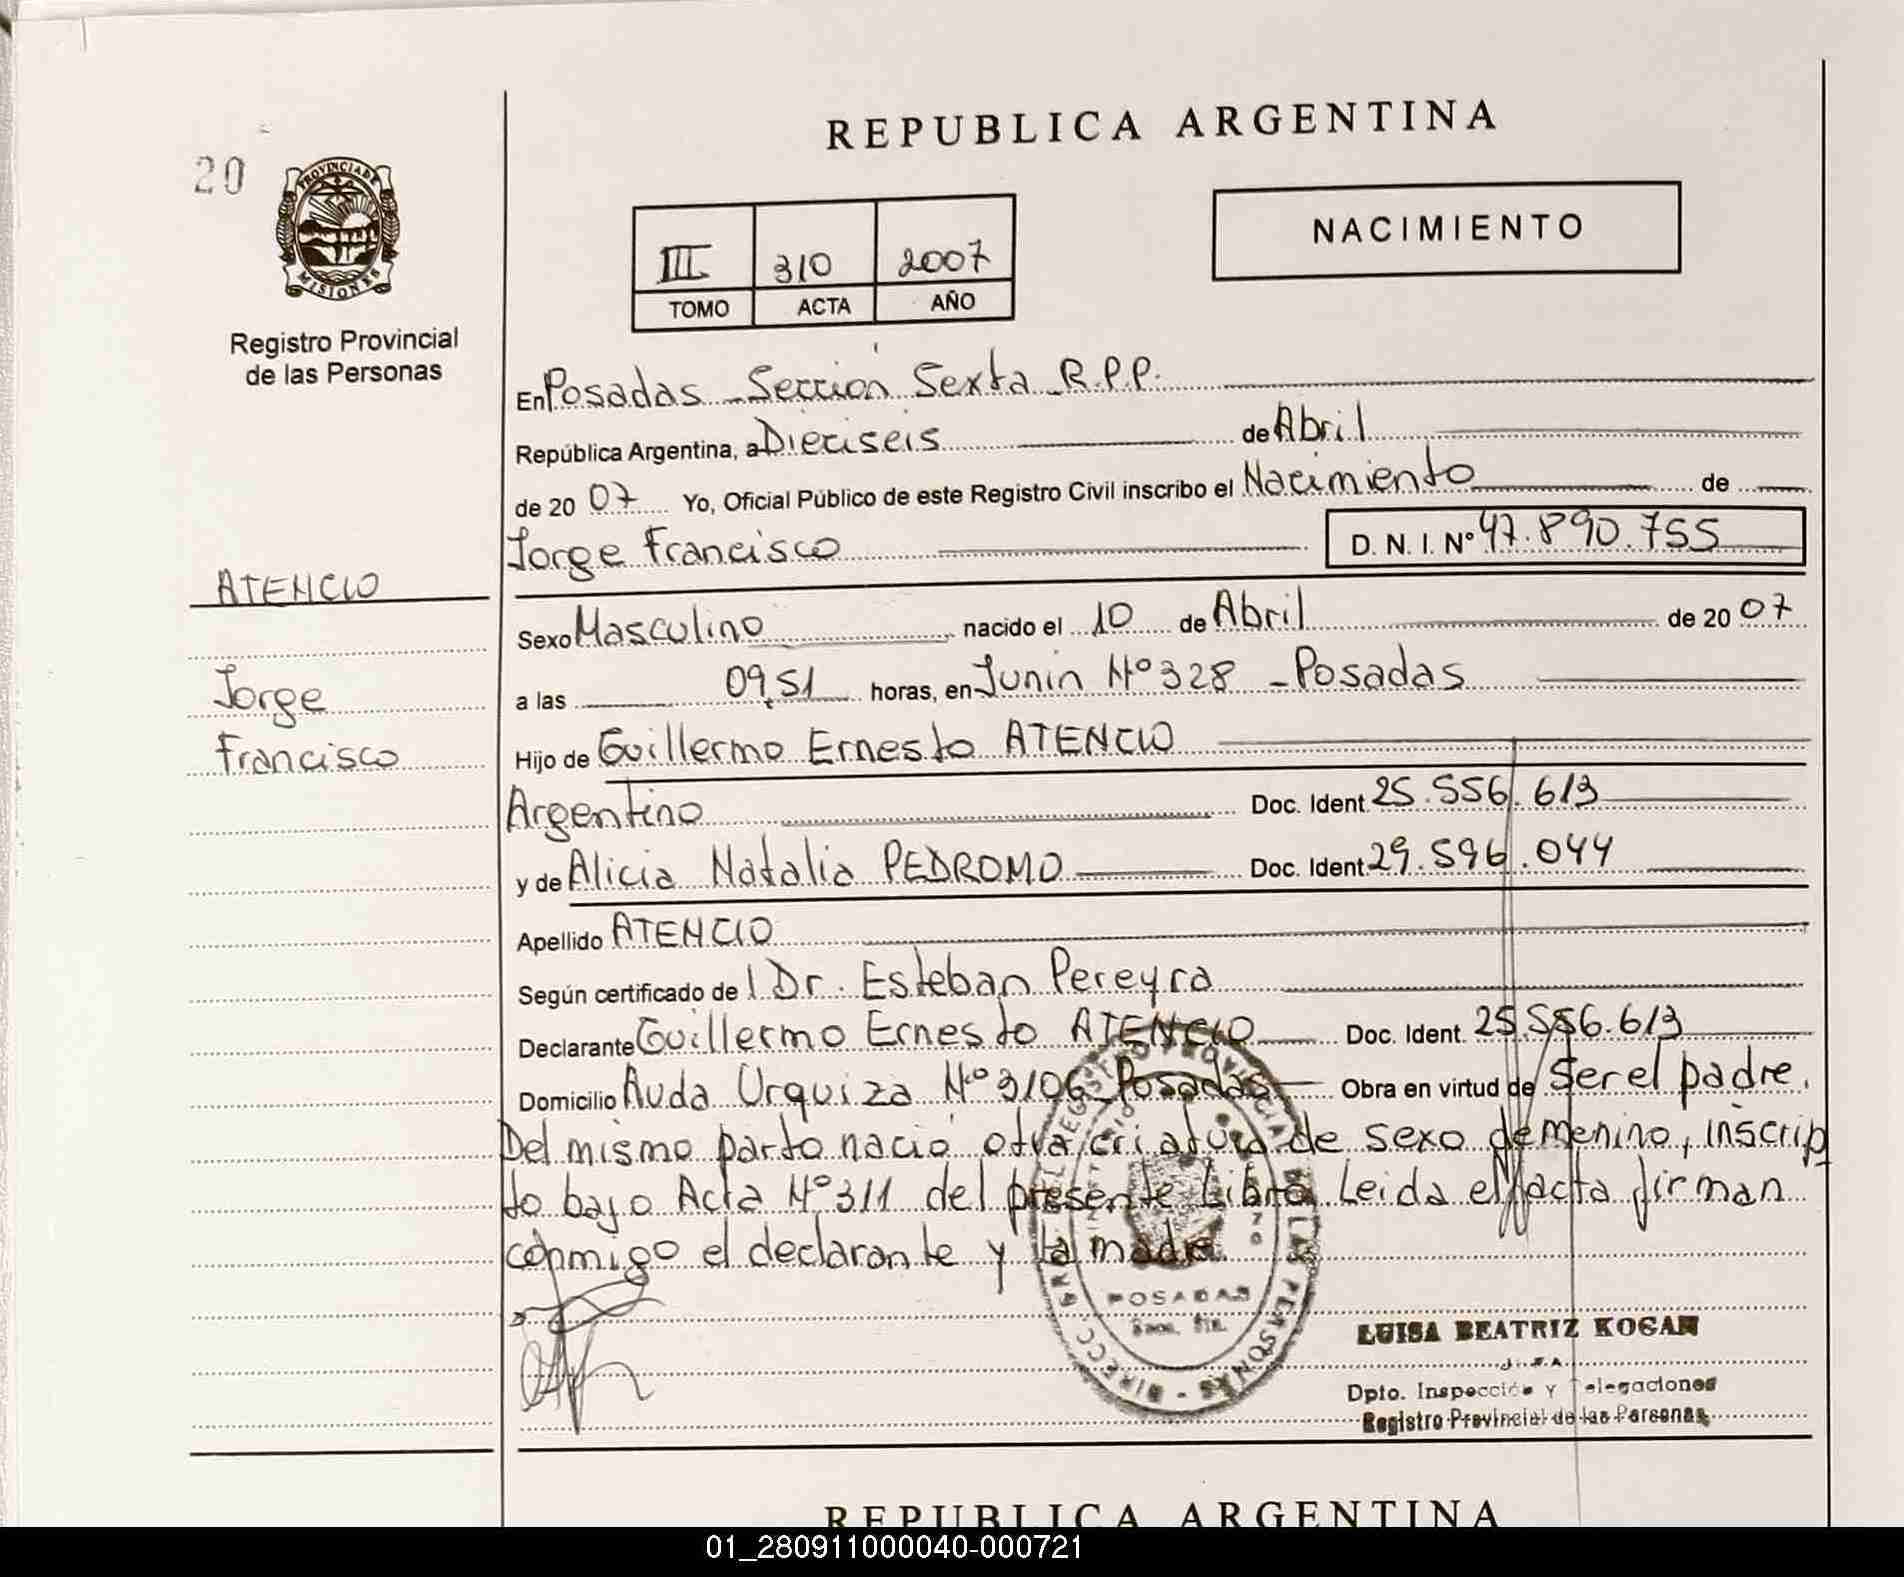 REPUBLICA ARGENTINA
20
PROVINCIA DE
MISIONES
NACIMIENTO
III 310 2007
TOMO ACTA AÑO
Registro Provincial
de las Personas
En Posadas - Sección Sexta - R.P.P.
República Argentina, a Dieciseis de Abril
de 2007 Yo, Oficial Público de este Registro Civil inscribo el Nacimiento de
Jorge Francisco D. N. I. Nº 47.890.755
ATENCIO
Sexo Masculino nacido el 10 de Abril de 2007
Jorge
a las 09,51 horas, en Junin Nº 328 - Posadas
Francisco
Hijo de Guillermo Ernesto ATENCIO
Argentino Doc. Ident. 25.556.613
y de Alicia Natalia PEDROMO Doc. Ident. 29.596.044
Apellido ATENCIO
Según certificado de l Dr. Esteban Pereyra
Declarante Guillermo Ernesto ATENCIO Doc. Ident. 25.556.613
Domicilio Avda Urquiza Nº 3106 - Posadas - Obra en virtud de ser el padre.
Del mismo parto nació otra criatura de sexo femenino, inscrip
to bajo Acta Nº 311 del presente Libro. Leida el acta firman
conmigo el declarante y la madre
POSADAS
LUISA BEATRIZ KOGAN
Dpto. Inspección y Delegaciones
Registro Provincial de las Personas
REPUBLICA ARGENTINA
01_280911000040-000721